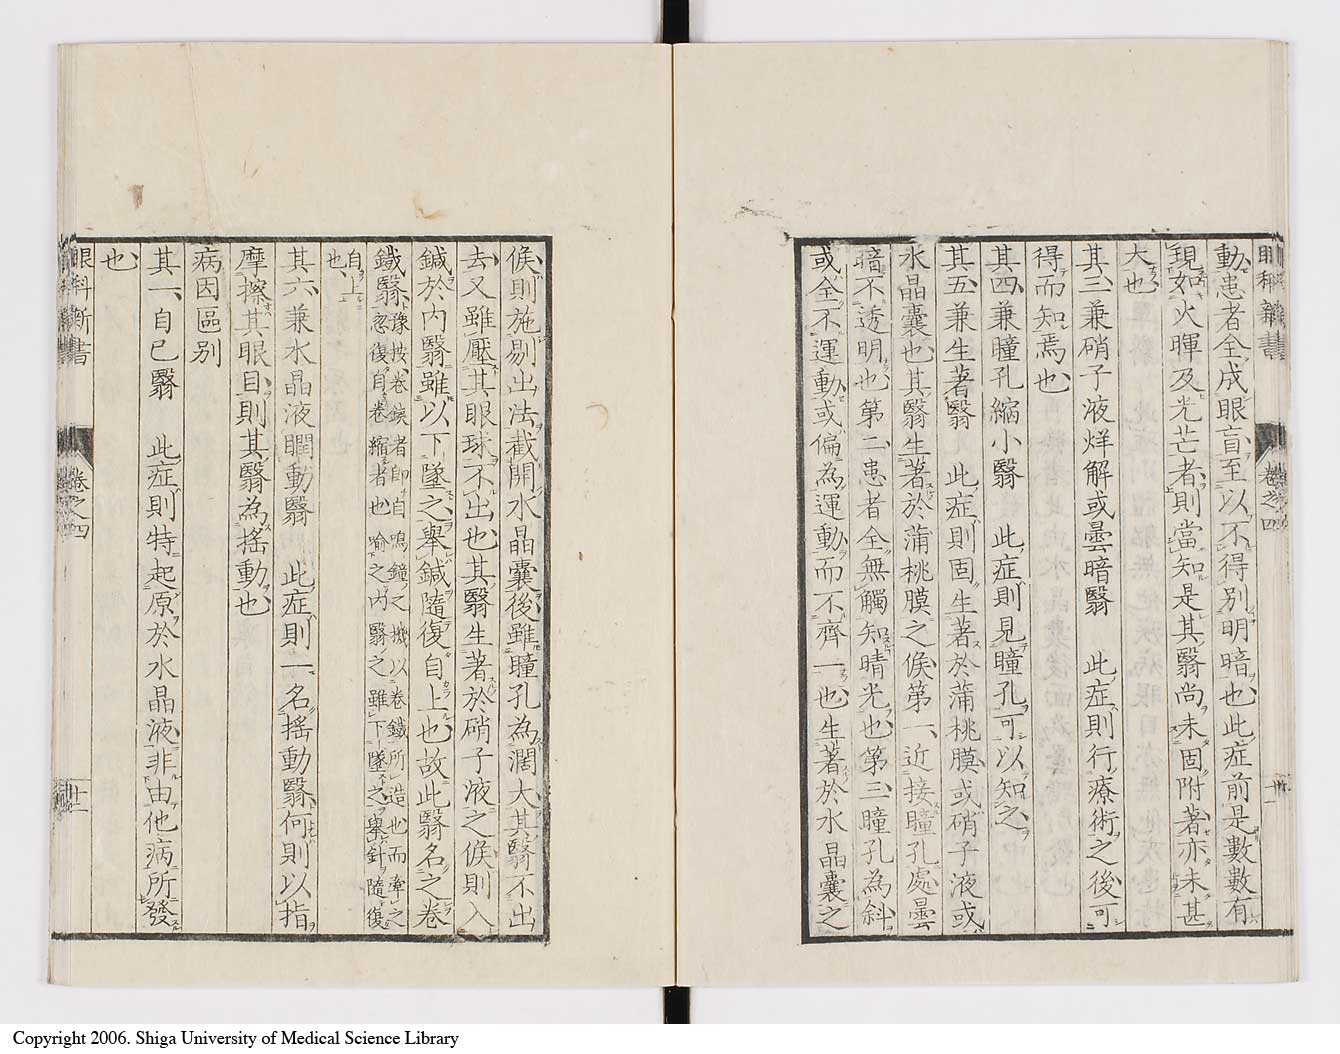 眼科新書
卷之四
動患者全成眼盲至以不得別明暗也此症前是數數有
現如火暉及光芒者則當知是其翳尚未固附著亦未甚
大也
其三兼硝子液烊解或曇暗翳　此症則行療術之後可
得而知焉也
其四兼瞳孔縮小翳　此症則見瞳孔可以知之
其五兼生著翳　此症則固生著於蒲桃膜或硝子液或
水晶囊也其翳生著於蒲桃膜之候第一近接瞳孔處曇
暗不透明也第二患者全無觸知晴光也第三瞳孔為斜
或全不運動或偏為運動而不齊一也生著於水晶囊之
候則施剔出法截開水晶囊後雖瞳孔為濶大其翳不出
去又雖壓其眼球不出也其翳生著於硝子液之候則入
鍼於內翳雖以下墜之舉鍼隨復自上也故此翳名之卷
鐵翳豫按卷鐵者即自鳴鐘之機以卷鐵所造也而牽之
忽復自卷縮者也喻之內翳之雖下墜之舉針隨復
自上
也
其六兼水晶液瞤動翳　此症則一名搖動翳何則以指
摩擦其眼目則其翳為搖動也
病因區別
其一自已翳　此症則特起原於水晶液非由他病所發
也
眼科新書
卷之四
十二
Copyright 2006. Shiga University of Medical Science Library